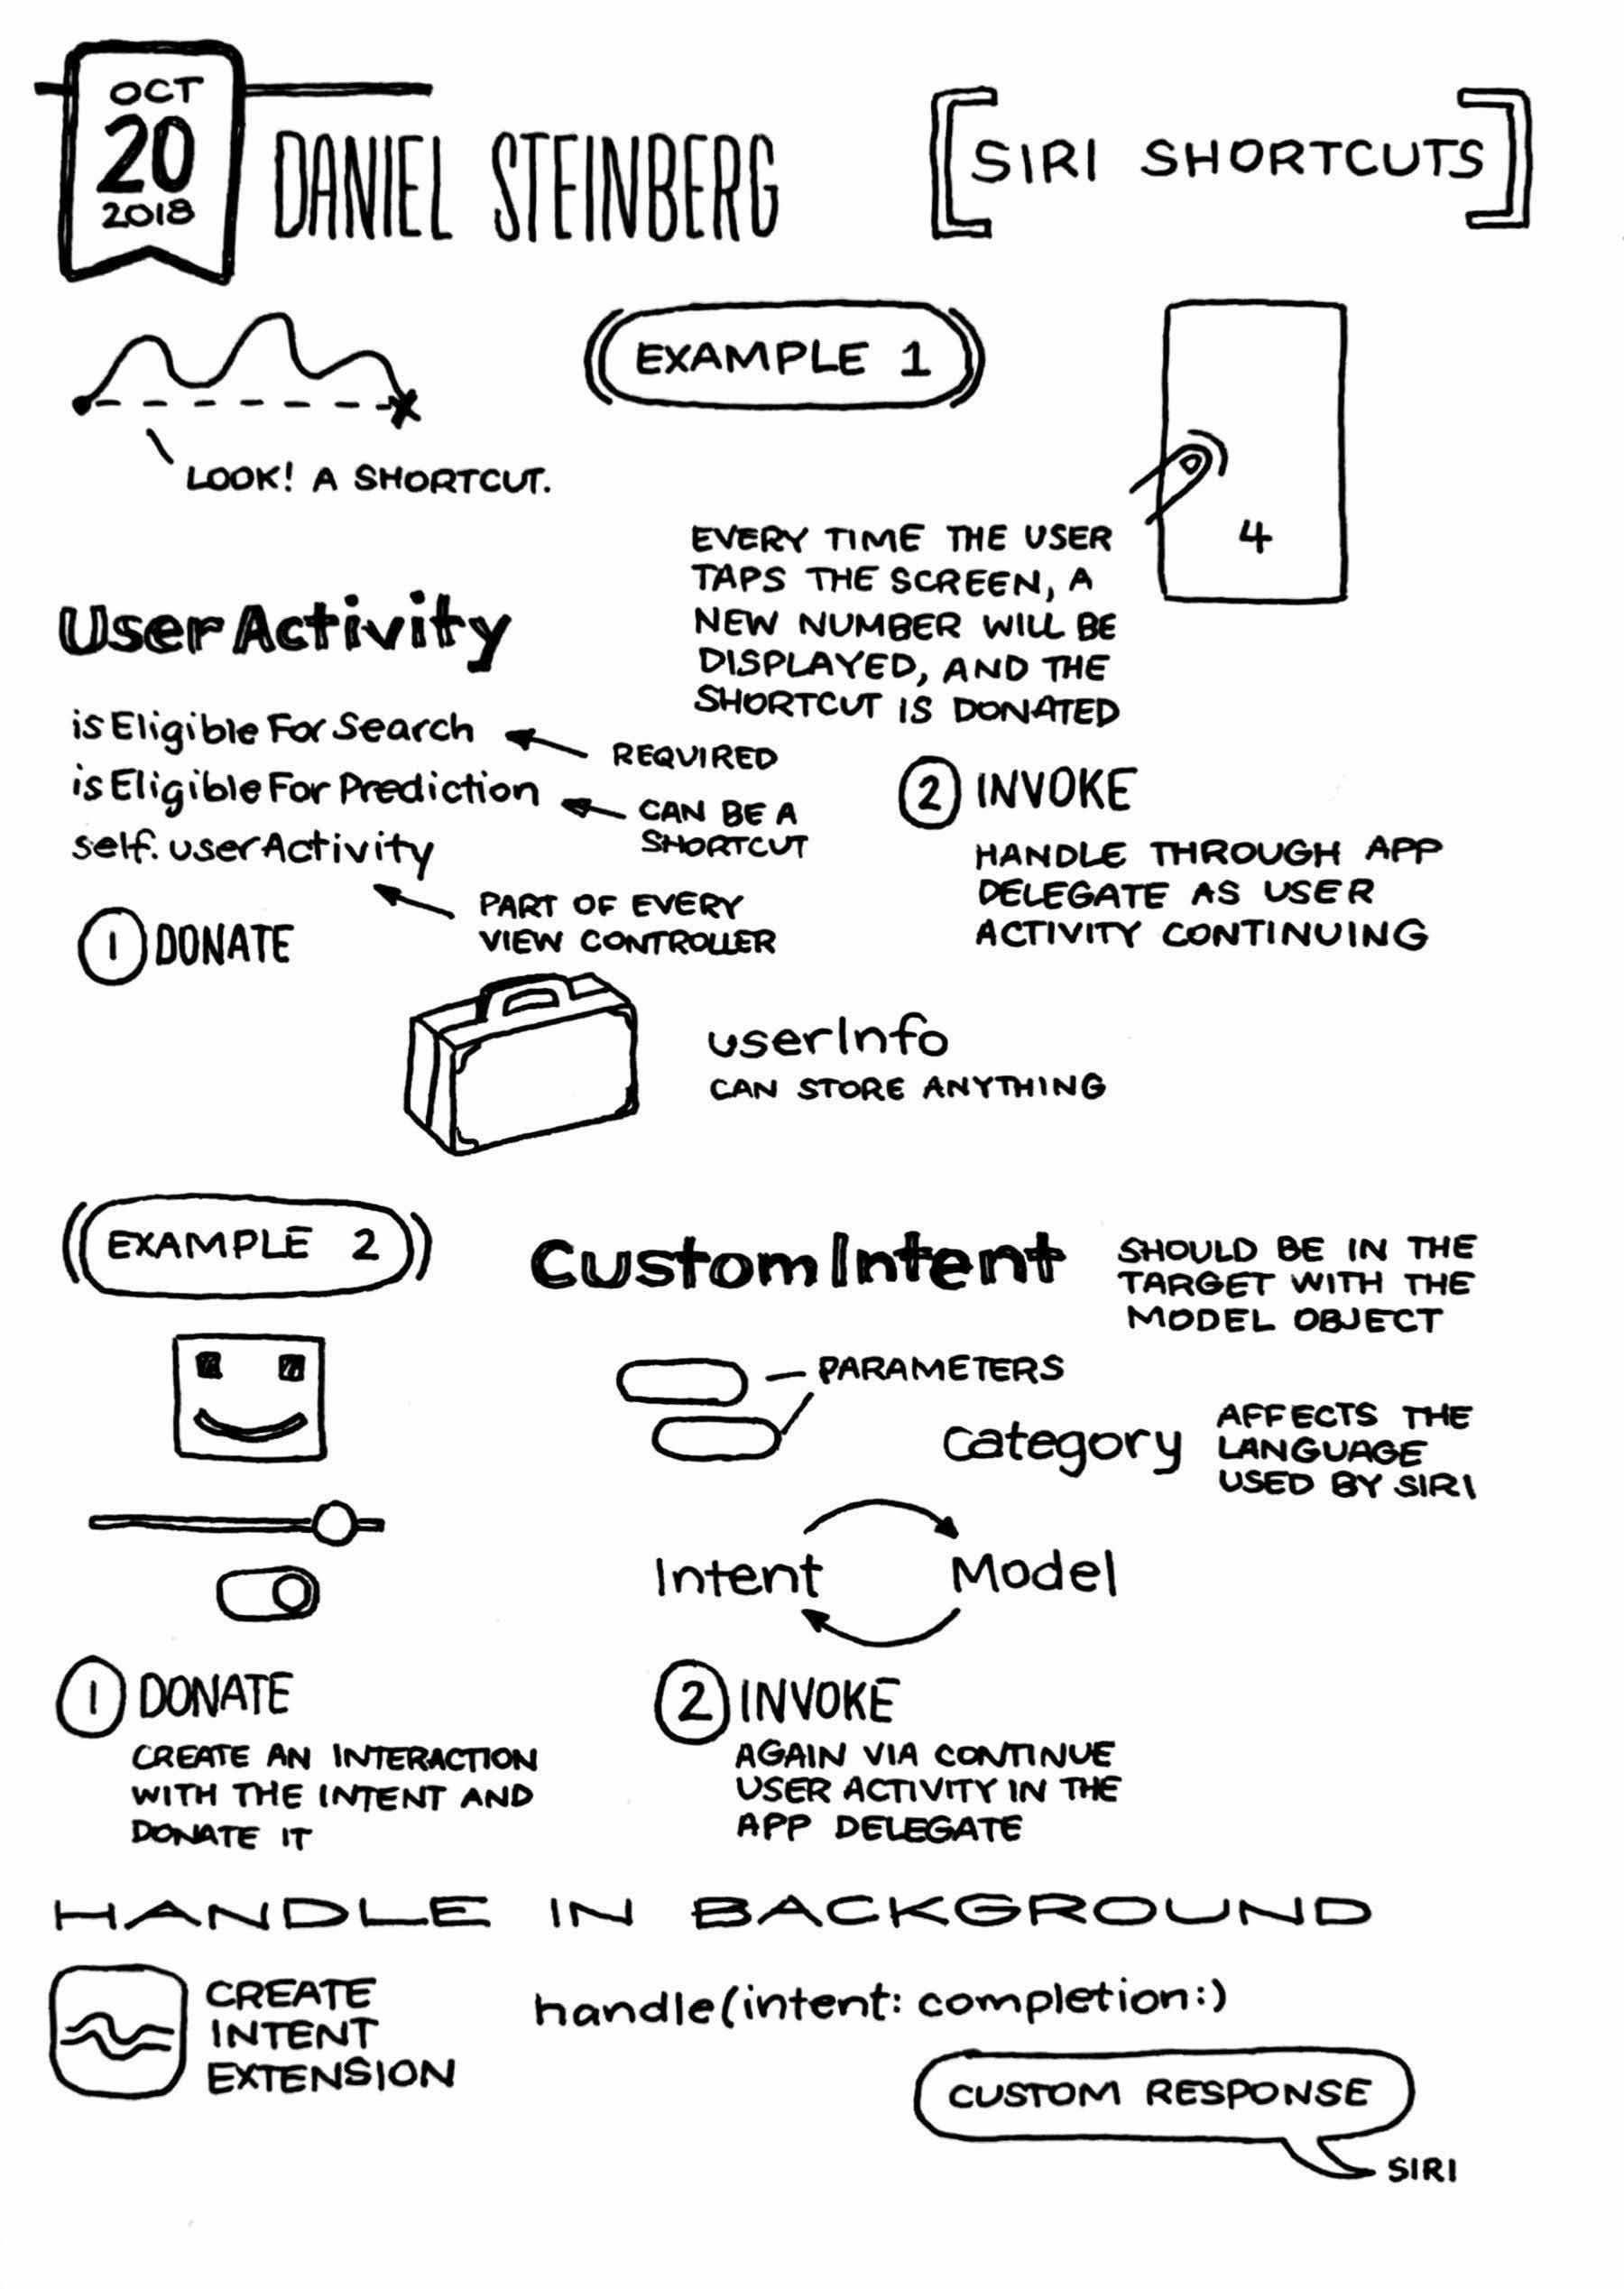 OCT
20
2018
DANIEL STEINBERG
SIRI SHORTCUTS
LOOK! A SHORTCUT.
EXAMPLE 1
4
EVERY TIME THE USER
TAPS THE SCREEN, A
NEW NUMBER WILL BE
DISPLAYED, AND THE
SHORTCUT IS DONATED
UserActivity
isEligibleForSearch
REQUIRED
isEligibleForPrediction
CAN BE A
SHORTCUT
self.userActivity
PART OF EVERY
VIEW CONTROLLER
1 DONATE
2 INVOKE
HANDLE THROUGH APP
DELEGATE AS USER
ACTIVITY CONTINUING
userInfo
CAN STORE ANYTHING
EXAMPLE 2
CustomIntent
SHOULD BE IN THE
TARGET WITH THE
MODEL OBJECT
PARAMETERS
category
AFFECTS THE
LANGUAGE
USED BY SIRI
Intent
Model
1 DONATE
CREATE AN INTERACTION
WITH THE INTENT AND
DONATE IT
2 INVOKE
AGAIN VIA CONTINUE
USER ACTIVITY IN THE
APP DELEGATE
HANDLE IN BACKGROUND
CREATE
INTENT
EXTENSION
handle(intent: completion:)
CUSTOM RESPONSE
SIRI